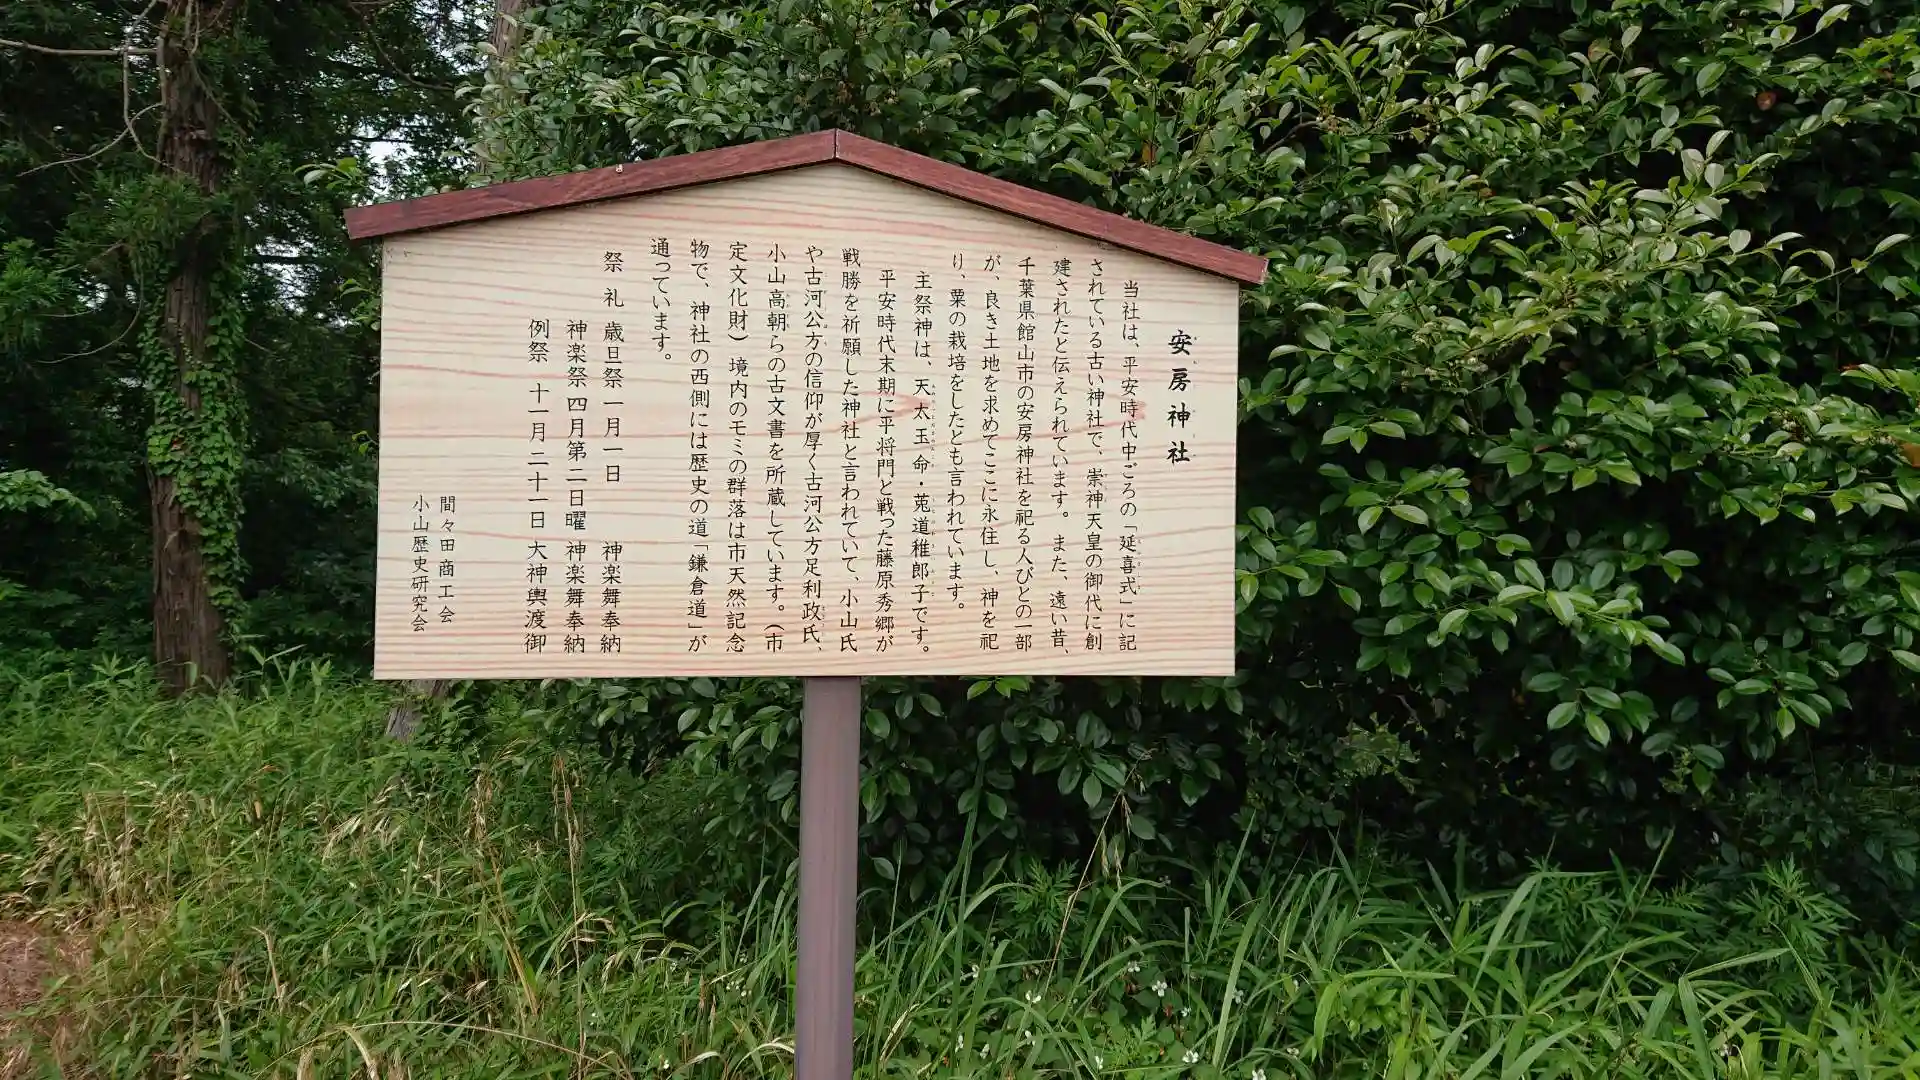 安房神社
当社は、平安時代中ごろの「延喜式」に記
されている古い神社で、崇神天皇の御代に創
建されたと伝えられています。また、遠い昔、
千葉県館山市の安房神社を祀る人びとの一部
が、良き土地を求めてここに永住し、神を祀
り、粟の栽培をしたとも言われています。
主祭神は、天太玉命・莵道稚郎子です。
平安時代末期に平将門と戦った藤原秀郷が
戦勝を祈願した神社と言われていて、小山氏
や古河公方の信仰が厚く古河公方足利政氏、
小山高朝らの古文書を所蔵しています。（市
定文化財）境内のモミの群落は市天然記念
物で、神社の西側には歴史の道「鎌倉道」が
通っています。
祭礼 歳旦祭一月一日 神楽舞奉納
神楽祭四月第二日曜 神楽舞奉納
例祭 十一月二十一日 大神輿渡御
間々田商工会
小山歴史研究会